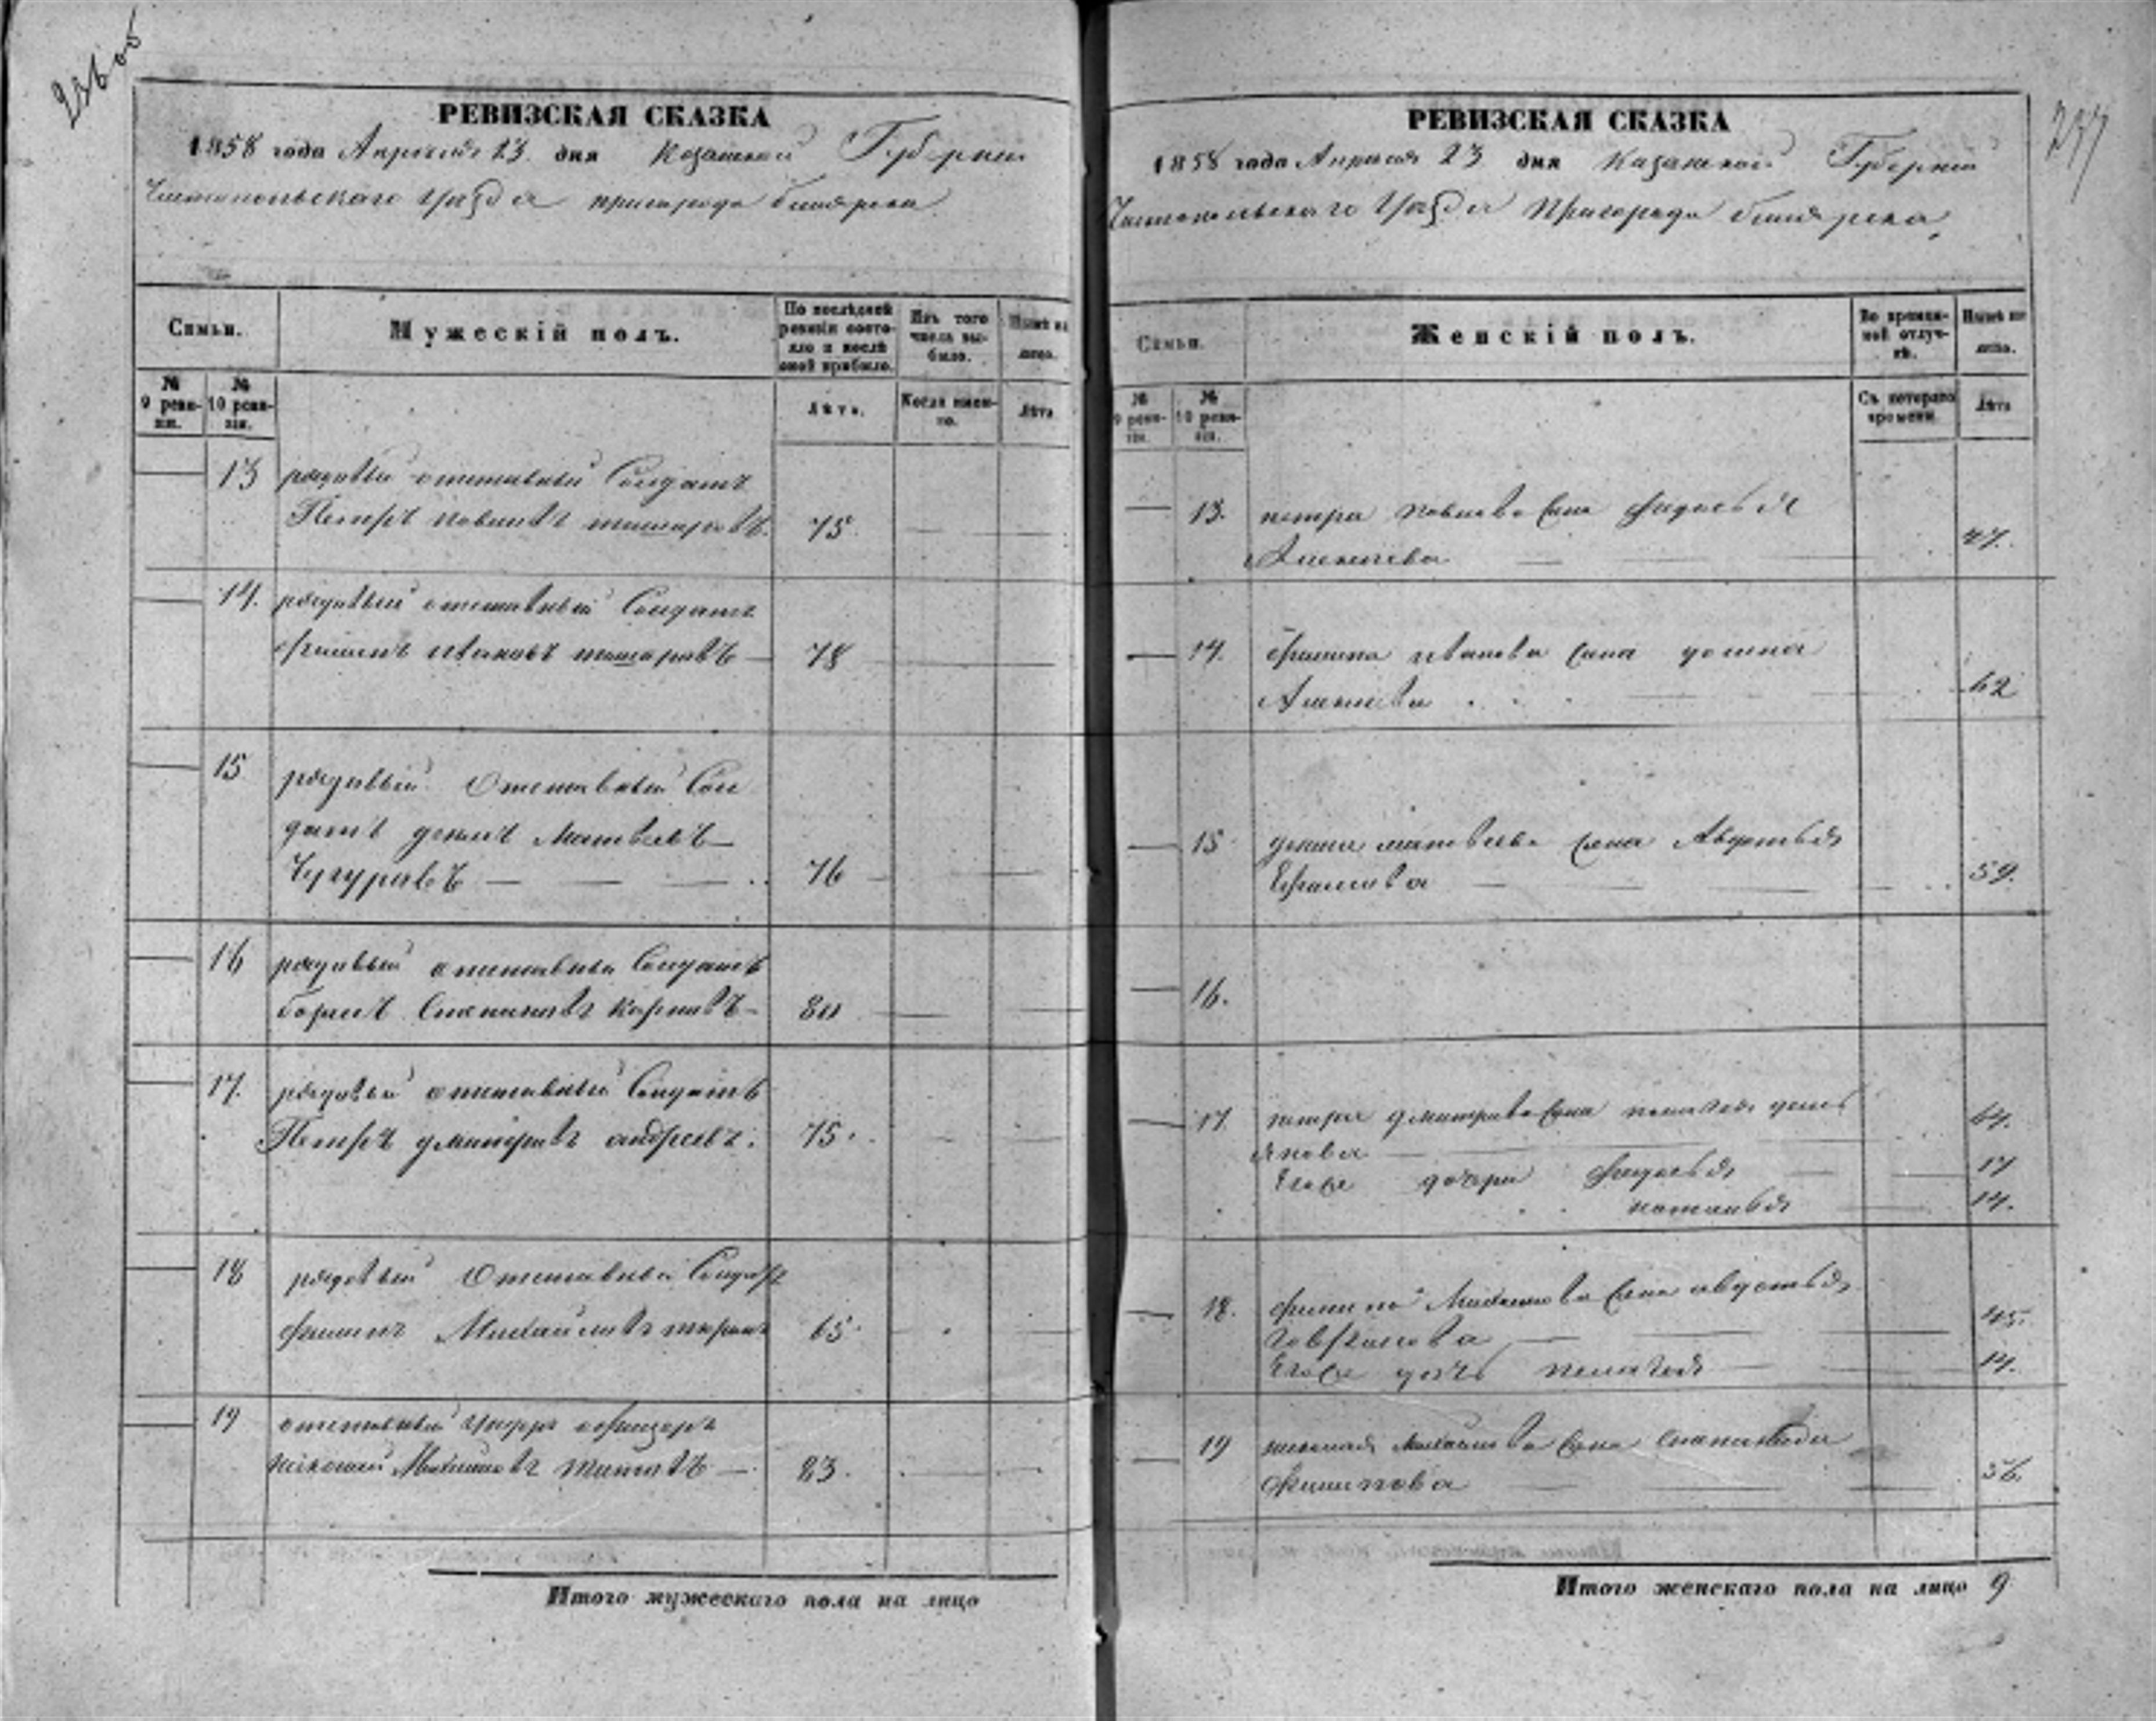 236 об
РЕВИЗСКАЯ СКАЗКА
1858 года Апреля 23 дня Казанской Губернии
Чистопольскаго уезда пригорода билярска
Семьи.
Мужескій полъ.
По послѣдней ревизіи состояло и послѣ оной прибыло.
Изъ того числа выбыло.
Нынѣ на лицо.
№ 9 ревизіи.
№ 10 ревизіи.
Лѣта.
Когда именно.
Лѣта
13 рядовый отставный Солдатъ
Петръ павловъ 75
14. рядовый отставный Солдатъ
филипъ ивановъ 78
15 рядовый Отставный Сол
датъ демитъ Матвеевъ
Чугуровъ 76
16 рядовый отставный Солдатъ
борисъ Степановъ карповъ 80
17. рядовый отставный Солдатъ
Петръ дмитровъ андреевъ. 75.
18 рядовый Отставный Солдатъ
филипъ Михайловъ 65
19 отставный ундеръ офицеръ
николай Михайловъ титовъ 83.
237
РЕВИЗСКАЯ СКАЗКА
1858 года Апреля 23 дня Казанской Губернии
Чистопольскаго уезда Пригорода билярска,
Семьи.
Женскій полъ.
Во временной отлучкѣ.
Нынѣ на лицо.
№ 9 ревизіи.
№ 10 ревизіи.
Съ котораго времени
Лѣта
13. петра павлова жена федосья
Алексеева 47.
14. филипа иванова жена домна
Алексеева 62
15 матвеева жена Авдотья
Ефимова 59.
16.
17. петра дмитрова жена пелагея
64.
Егоже дочери федосья 17
наталья 14.
18. филипа Михайлова жена авдотья
Гаврилова 45.
Егоже дочь пелагея 14.
19 николая михайлова жена степанида
филипова 56.
Итого мужескаго пола на лицо
Итого женскаго пола на лицо 9